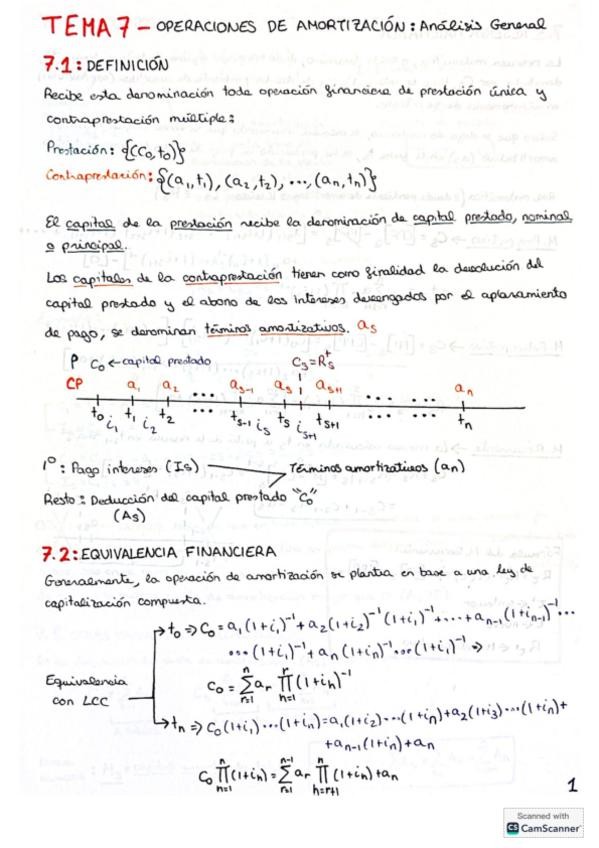 TEMA 7 - OPERACIONES DE AMORTIZACIÓN: Análisis General
7.1: DEFINICIÓN
Recibe esta denominación toda operación financiera de prestación única y
contraprestación múltiple:
Prestación: {(C₀,t₀)}
Contraprestación: {(a₁,t₁), (a₂,t₂), ..., (aₙ,tₙ)}
El capital de la prestación recibe la denominación de capital prestado, nominal
o principal.
Los capitales de la contraprestación tienen como finalidad la devolución del
capital prestado y el abono de los intereses devengados por el aplazamiento
de pago, se denominan términos amortizativos. aₛ
P C₀ ← capital prestado Cₛ=Rₛ⁺
CP a₁ a₂ ... aₛ₋₁ aₛ aₛ₊₁ ... ... aₙ
t₀ t₁ t₂ ... tₛ₋₁ tₛ tₛ₊₁ ... ... tₙ
i₁ i₂ iₛ iₛ₊₁
1º: Pago intereses (Iₛ) Términos amortizativos (aₙ)
Resto: Deducción del capital prestado "C₀"
(Aₛ)
7.2: EQUIVALENCIA FINANCIERA
Generalmente, la operación de amortización se plantea en base a una ley de
capitalización compuesta.
t₀ ⇒ C₀ = a₁(1+i₁)⁻¹ + a₂(1+i₂)⁻¹(1+i₁)⁻¹ + ... + aₙ₋₁(1+iₙ₋₁)⁻¹...
...(1+i₁)⁻¹ + aₙ(1+iₙ)⁻¹...(1+i₁)⁻¹ ⇒
Equivalencia
con LCC
C₀ = Σⁿᵣ₌₁ aᵣ ∏ʳₕ₌₁ (1+iₕ)⁻¹
tₙ ⇒ C₀(1+i₁)...(1+iₙ) = a₁(1+i₂)...(1+iₙ) + a₂(1+i₃)...(1+iₙ) +
+aₙ₋₁(1+iₙ)+aₙ
C₀ ∏ⁿₕ₌₁ (1+iₕ) = Σⁿ⁻¹ᵣ₌₁ aᵣ ∏ⁿₕ₌ᵣ₊₁ (1+iₕ)+aₙ
1
Scanned with
CS CamScanner